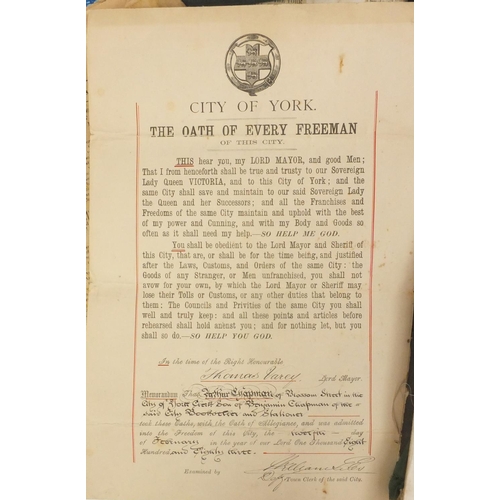 CITY OF YORK.
THE OATH OF EVERY FREEMAN
OF THIS CITY.
THIS hear you, my LORD MAYOR, and good Men;
That I from henceforth shall be true and trusty to our Sovereign
Lady Queen VICTORIA, and to this City of York; and the
same City shall save and maintain to our said Sovereign Lady
the Queen and her Successors; and all the Franchises and
Freedoms of the same City maintain and uphold with the best
of my power and Cunning, and with my Body and Goods so
often as it shall need my help.—SO HELP ME GOD.
You shall be obedient to the Lord Mayor and Sheriff of
this City, that are, or shall be for the time being, and justified
after the Laws, Customs, and Orders of the same City: the
Goods of any Stranger, or Men unfranchised, you shall not
avow for your own, by which the Lord Mayor or Sheriff may
lose their Tolls or Customs, or any other duties that belong to
them: The Councils and Privities of the same City you shall
well and truly keep: and all these points and articles before
rehearsed shall hold anenst you; and for nothing let, but you
shall so do.—SO HELP YOU GOD.
In the time of the Right Honourable
Thomas Varey Lord Mayor.
Memorandum That Arthur Chapman of Blossom Street in the
City of York Clerk Son of Benjamin Chapman of the
said City Bookseller and Stationer
took these Oaths, with the Oath of Allegiance, and was admitted
into the Freedom of this City, the day
of February in the year of our Lord One Thousand Eight
Hundred and Eighty three.
Examined by
Dpy Town Clerk of the said City.